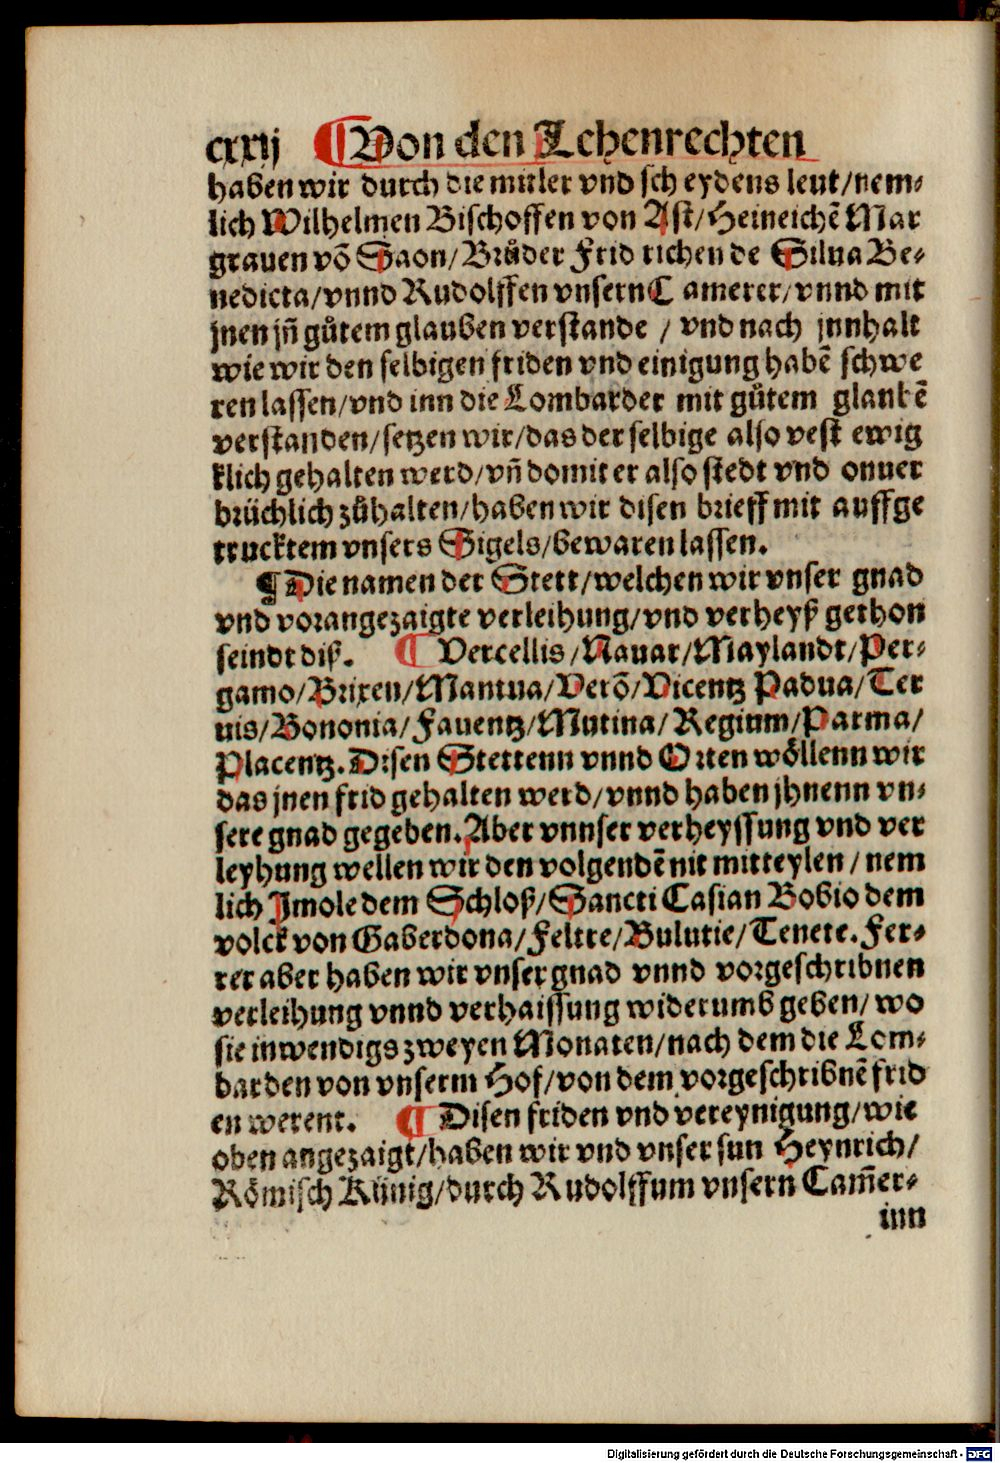 cxxij ¶Von den Lehenrechten
haben wir durch die mitler vnd sch eydens leut/nem⸗
lich Wilhelmen Bischoffen von Ast/Heineichē Mar
grauen võ Saon/Brůder Frid richen de Silua Be⸗
nedicta/vnnd Rudolffen vnsern C amerer/vnnd mit
jnen jn̄ gůtem glauben verstande / vnd nach jnnhalt
wie wir den selbigen friden vnd einigung habē schwe
ren lassen/vnd inn die Lombarder mit gůtem glaubē
verstanden/setzen wir/das der selbige also vest ewig
klich gehalten werd/vn̄ domit er also stedt vnd onuer
brüchlich zůhalten/haben wir disen brieff mit auffge
trucktem vnsers Sigels/bewaren lassen.
¶ Die namen der Stett/welchen wir vnser gnad
vnd vorangezaigte verleihung/vnd verheyß gethon
seindt diß. ¶ Vercellis/Nauar/Maylandt/Per⸗
gamo/Brixen/Mantua/Verõ/Vicentz Padua/Ter
uis/Bononia/Fauentz/Mutina/Regium/Parma/
Placentz. Disen Stettenn vnnd Orten wöllenn wir
das jnen frid gehalten werd/vnnd haben jhnenn vn⸗
sere gnad gegeben. Aber vnnser verheyssung vnd ver
leyhung wellen wir den volgendē nit mitteylen/nem
lich Jmole dem Schloß/Sancti Casian Bobio dem
volck von Gaberdona/Feltre/Bulutie/Tenete. Fer⸗
rer aber haben wir vnser gnad vnnd vorgeschribnen
verleihung vnnd verhaissung widerumb geben/wo
sie inwendigs zweyen Monaten/nach dem die Lom⸗
barden von vnserm Hof/von dem vorgeschribnē frid
en werent. ¶ Disen friden vnd vereynigung/wie
oben angezaigt/haben wir vnd vnser sun Heynrich/
Römisch Künig/durch Rudolffum vnsern Cam̄er⸗
inn
Digitalisierung gefördert durch die Deutsche Forschungsgemeinschaft - DFG